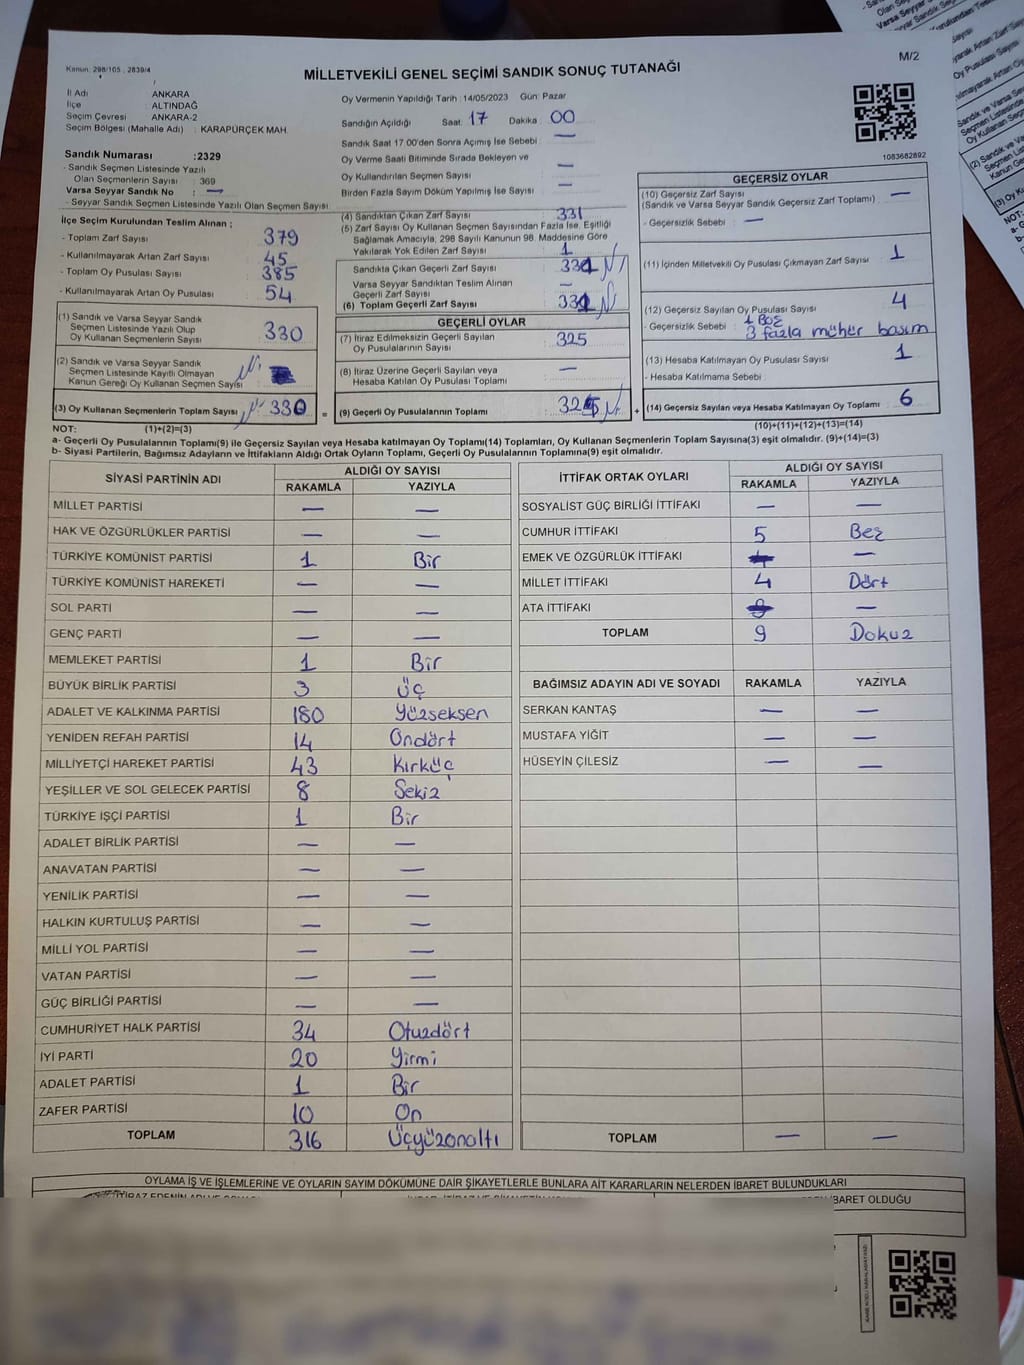 M/2
Kanun: 298/105 , 2839/4
MİLLETVEKİLİ GENEL SEÇİMİ SANDIK SONUÇ TUTANAĞI
İl Adı : ANKARA
İlçe : ALTINDAĞ
Seçim Çevresi : ANKARA-2
Seçim Bölgesi (Mahalle Adı) : KARAPÜRÇEK MAH.
Sandık Numarası :2329
- Sandık Seçmen Listesinde Yazılı
Olan Seçmenlerin Sayısı : 369
Varsa Seyyar Sandık No : —
- Seyyar Sandık Seçmen Listesinde Yazılı Olan Seçmen Sayısı:
Oy Vermenin Yapıldığı Tarih :14/05/2023 Gün: Pazar
Sandığın Açıldığı Saat: 17 Dakika : 00
Sandık Saat 17.00'den Sonra Açılmış İse Sebebi : —
Oy Verme Saati Bitiminde Sırada Bekleyen ve
Oy Kullandırılan Seçmen Sayısı : —
Birden Fazla Sayım Döküm Yapılmış İse Sayısı : —
1083682892
İlçe Seçim Kurulundan Teslim Alınan ;
- Toplam Zarf Sayısı : 379
- Kullanılmayarak Artan Zarf Sayısı : 45
- Toplam Oy Pusulası Sayısı : 385
- Kullanılmayarak Artan Oy Pusulası : 54
(1) Sandık ve Varsa Seyyar Sandık
Seçmen Listesinde Yazılı Olup
Oy Kullanan Seçmenlerin Sayısı : 330
(2) Sandık ve Varsa Seyyar Sandık
Seçmen Listesinde Kayıtlı Olmayan
Kanun Gereği Oy Kullanan Seçmen Sayısı :
(3) Oy Kullanan Seçmenlerin Toplam Sayısı : 330 =
(4) Sandıktan Çıkan Zarf Sayısı : 331
(5) Zarf Sayısı Oy Kullanan Seçmen Sayısından Fazla İse, Eşitliği
Sağlamak Amacıyla, 298 Sayılı Kanunun 98. Maddesine Göre
Yakılarak Yok Edilen Zarf Sayısı : 1
Sandıkta Çıkan Geçerli Zarf Sayısı :
Varsa Seyyar Sandıktan Teslim Alınan
Geçerli Zarf Sayısı : —
(6) Toplam Geçerli Zarf Sayısı :
GEÇERLİ OYLAR
(7) İtiraz Edilmeksizin Geçerli Sayılan
Oy Pusulalarının Sayısı : 325
(8) İtiraz Üzerine Geçerli Sayılan veya
Hesaba Katılan Oy Pusulası Toplamı : —
(9) Geçerli Oy Pusulalarının Toplamı : +
GEÇERSİZ OYLAR
(10) Geçersiz Zarf Sayısı : —
(Sandık ve Varsa Seyyar Sandık Geçersiz Zarf Toplamı)
- Geçersizlik Sebebi : —
(11) İçinden Milletvekili Oy Pusulası Çıkmayan Zarf Sayısı : 1
(12) Geçersiz Sayılan Oy Pusulası Sayısı : 4
1 Boş
- Geçersizlik Sebebi : 3 fazla mühür basım
(13) Hesaba Katılmayan Oy Pusulası Sayısı : 1
- Hesaba Katılmama Sebebi :
(14) Geçersiz Sayılan veya Hesaba Katılmayan Oy Toplamı : 6
NOT: (1)+(2)=(3) (10)+(11)+(12)+(13)=(14)
a- Geçerli Oy Pusulalarının Toplamı(9) ile Geçersiz Sayılan veya Hesaba katılmayan Oy Toplamı(14) Toplamları, Oy Kullanan Seçmenlerin Toplam Sayısına(3) eşit olmalıdır. (9)+(14)=(3)
b- Siyasi Partilerin, Bağımsız Adayların ve İttifakların Aldığı Ortak Oyların Toplamı, Geçerli Oy Pusulalarının Toplamına(9) eşit olmalıdır.
SİYASİ PARTİNİN ADI ALDIĞI OY SAYISI
RAKAMLA YAZIYLA
MİLLET PARTİSİ — —
HAK VE ÖZGÜRLÜKLER PARTİSİ — —
TÜRKİYE KOMÜNİST PARTİSİ 1 Bir
TÜRKİYE KOMÜNİST HAREKETİ — —
SOL PARTİ — —
GENÇ PARTİ — —
MEMLEKET PARTİSİ 1 Bir
BÜYÜK BİRLİK PARTİSİ 3 Üç
ADALET VE KALKINMA PARTİSİ 180 Yüzseksen
YENİDEN REFAH PARTİSİ 14 Ondört
MİLLİYETÇİ HAREKET PARTİSİ 43 Kırküç
YEŞİLLER VE SOL GELECEK PARTİSİ 8 Sekiz
TÜRKİYE İŞÇİ PARTİSİ 1 Bir
ADALET BİRLİK PARTİSİ — —
ANAVATAN PARTİSİ — —
YENİLİK PARTİSİ — —
HALKIN KURTULUŞ PARTİSİ — —
MİLLİ YOL PARTİSİ — —
VATAN PARTİSİ — —
GÜÇ BİRLİĞİ PARTİSİ — —
CUMHURİYET HALK PARTİSİ 34 Otuzdört
İYİ PARTİ 20 Yirmi
ADALET PARTİSİ 1 Bir
ZAFER PARTİSİ 10 On
TOPLAM 316 Üçyüzonaltı
İTTİFAK ORTAK OYLARI ALDIĞI OY SAYISI
RAKAMLA YAZIYLA
SOSYALİST GÜÇ BİRLİĞİ İTTİFAKI — —
CUMHUR İTTİFAKI 5 Beş
EMEK VE ÖZGÜRLÜK İTTİFAKI —
MİLLET İTTİFAKI 4 Dört
ATA İTTİFAKI —
TOPLAM 9 Dokuz
BAĞIMSIZ ADAYIN ADI VE SOYADI RAKAMLA YAZIYLA
SERKAN KANTAŞ — —
MUSTAFA YİĞİT — —
HÜSEYİN ÇİLESİZ — —
TOPLAM — —
OYLAMA İŞ VE İŞLEMLERİNE VE OYLARIN SAYIM DÖKÜMÜNE DAİR ŞİKAYETLERLE BUNLARA AİT KARARLARIN NELERDEN İBARET BULUNDUKLARI
İBARET OLDUĞU